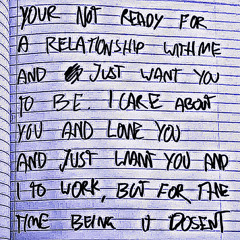 YOUR NOT READY FOR
A RELATIONSHIP WITH ME
AND JUST WANT YOU
TO BE. I CARE ABOUT
YOU AND LOVE YOU
AND JUST WANT YOU AND
I TO WORK, BUT FOR THE
TIME BEING IT DOSENT